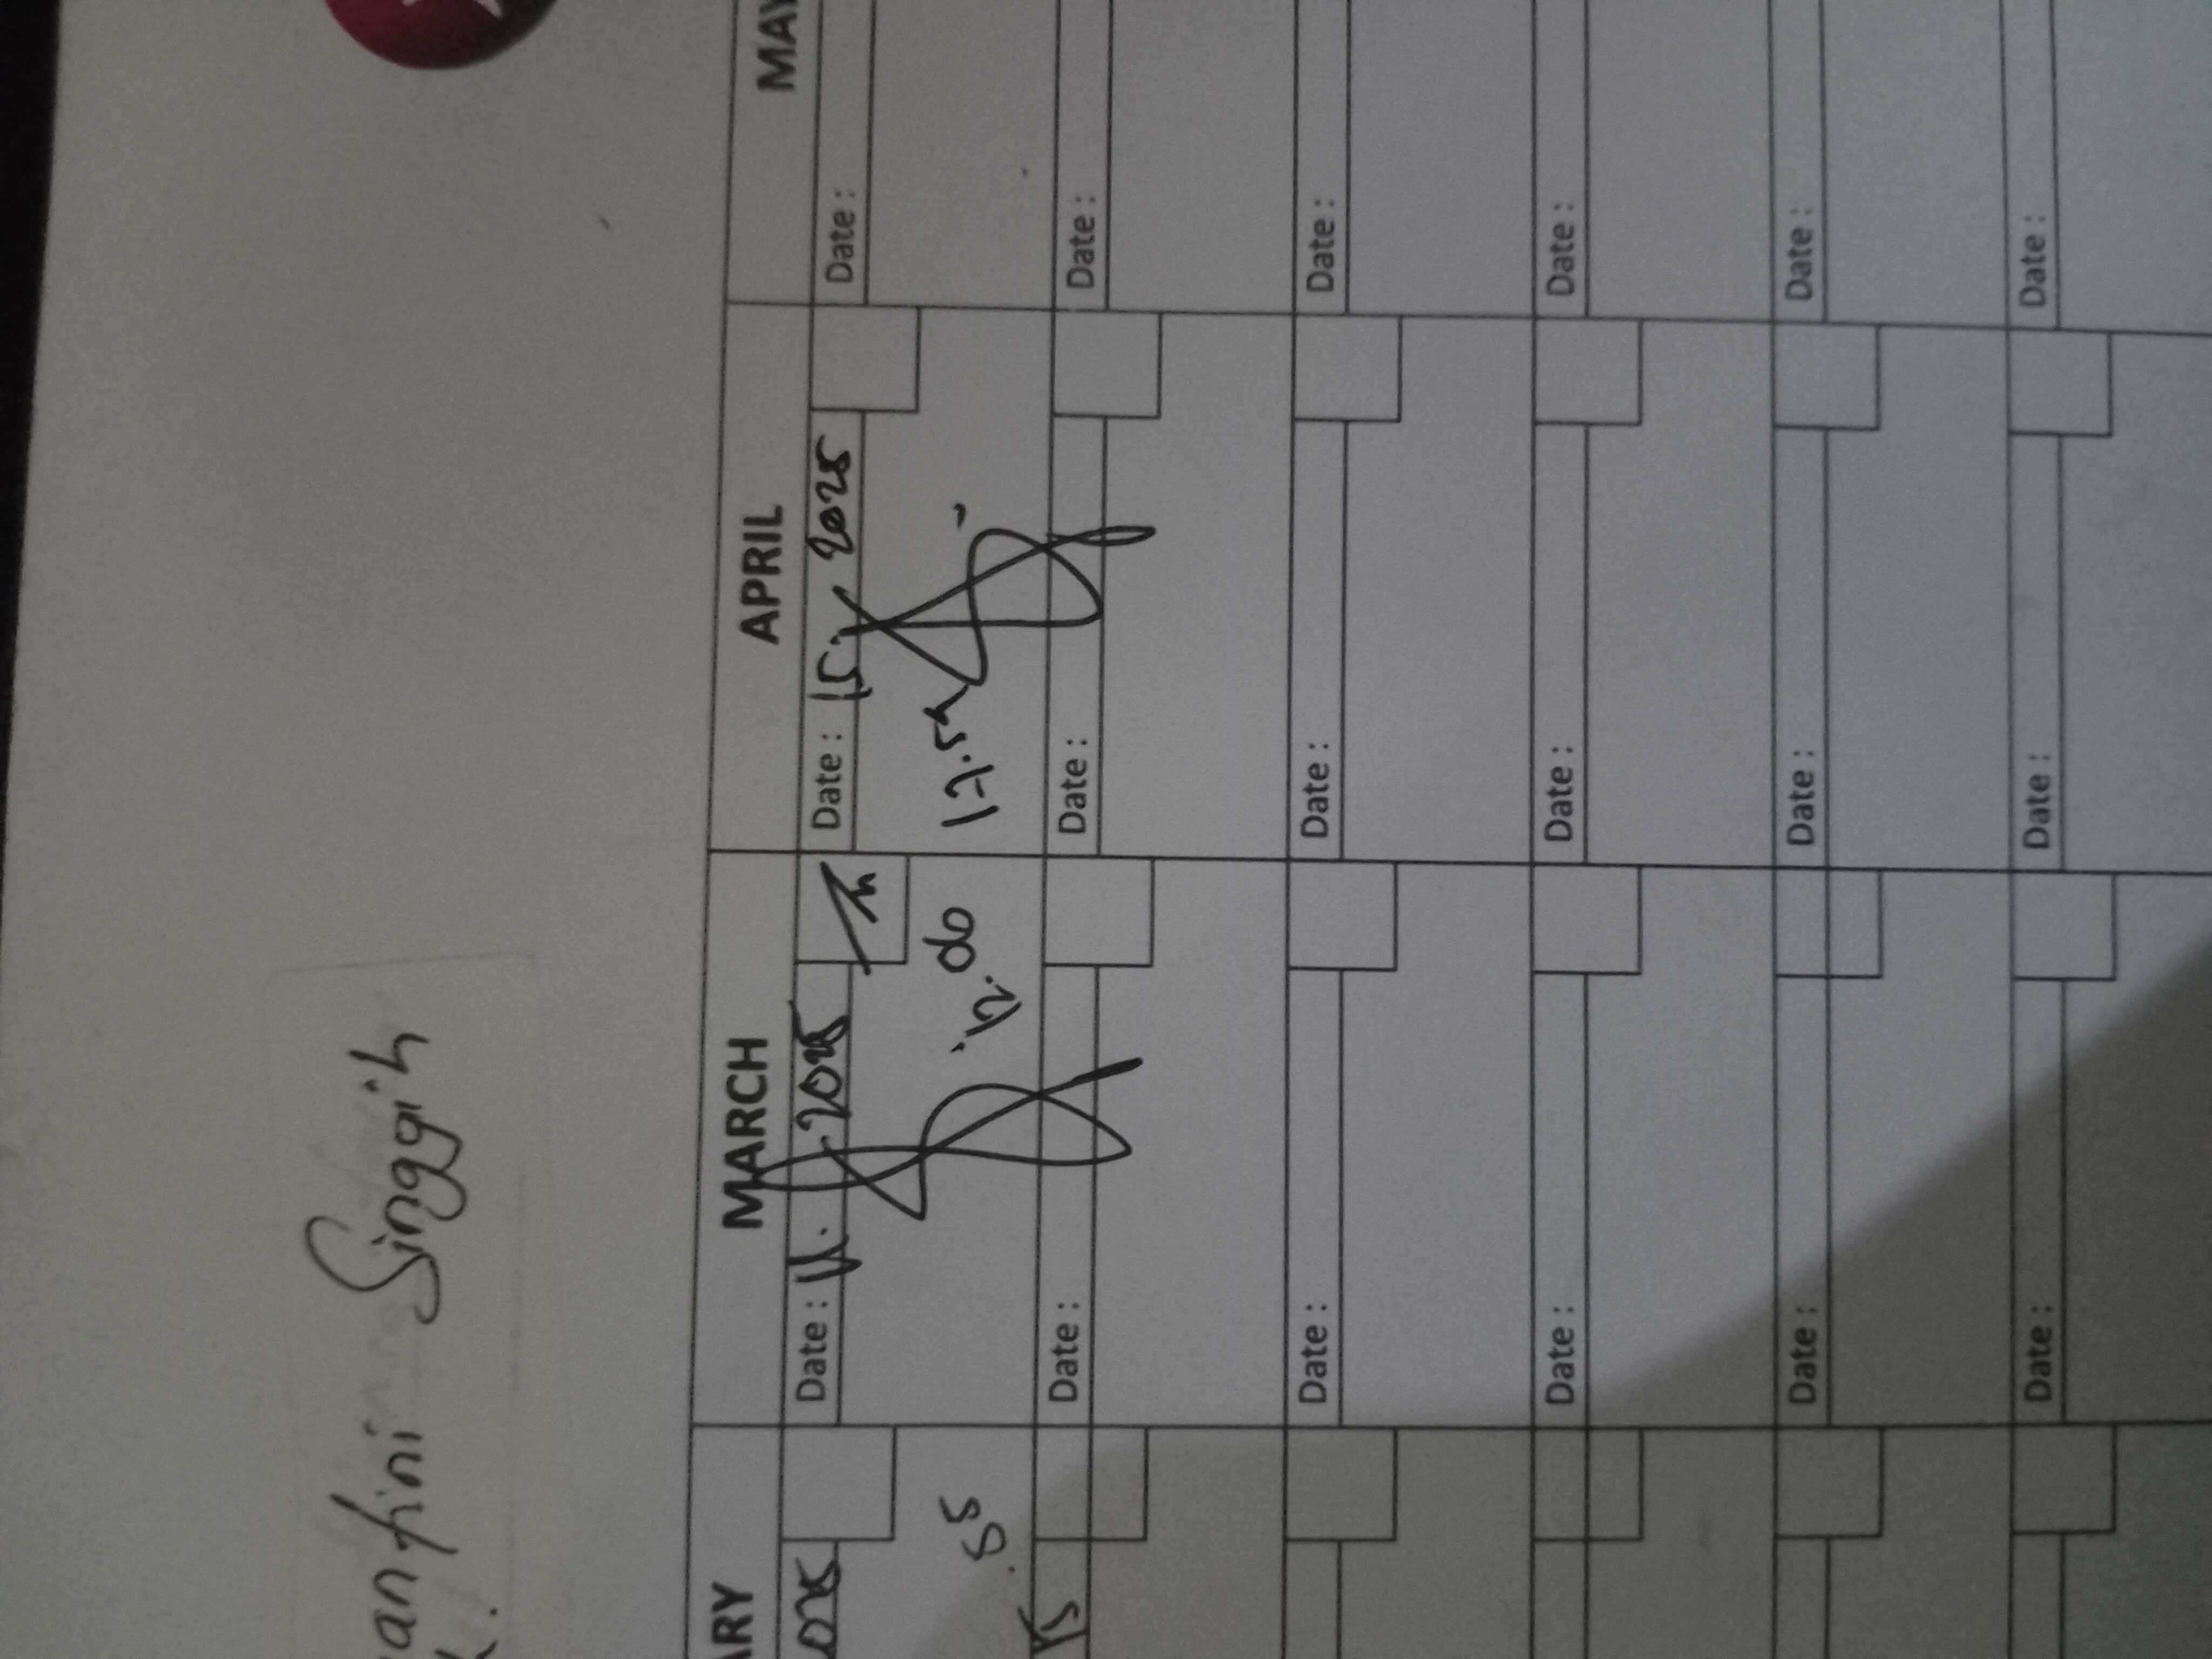 Singgih
ARY MARCH APRIL MAY
Date : 2025 Date : 15 2025 Date :
55 12.00 17.54
Date : Date : Date :
Date : Date : Date :
Date : Date : Date :
Date : Date : Date :
Date : Date : Date :